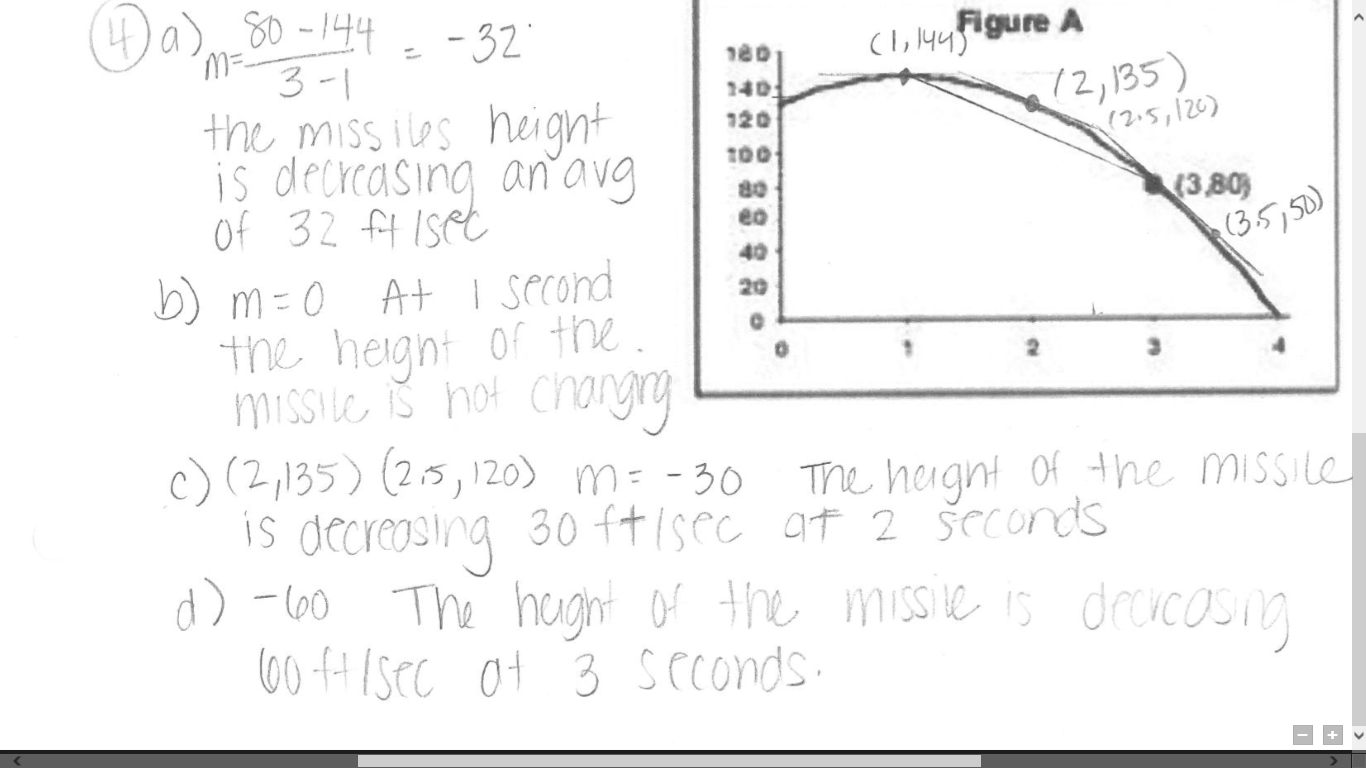 4 a) m= 80 - 144 / 3 - 1 = -32
the missiles height
is decreasing an avg
of 32 ft/sec
b) m=0 At 1 second
the height of the
missile is not changing
Figure A
(1,144)
(2,135)
(2.5,120)
(3,80)
(3.5,50)
160
140
120
100
80
60
40
20
0
0 1 2 3 4
c) (2,135) (2.5,120) m= -30 The height of the missile
is decreasing 30 ft/sec at 2 seconds
d) -60 The height of the missile is decreasing
60 ft/sec at 3 seconds.